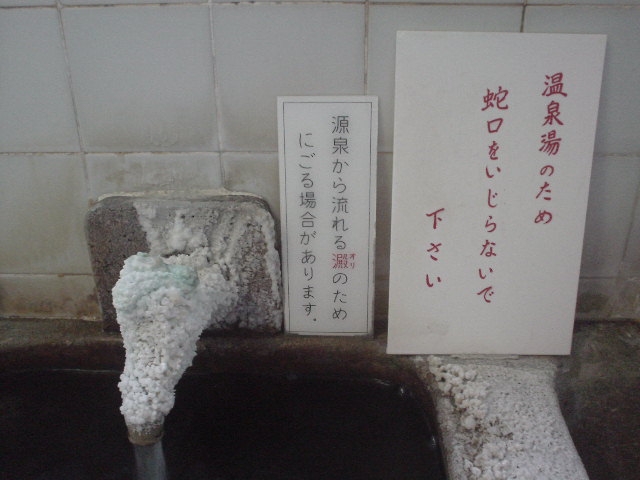 温泉湯のため
蛇口をいじらないで
下さい
源泉から流れる澱のため
オリ
にごる場合があります.